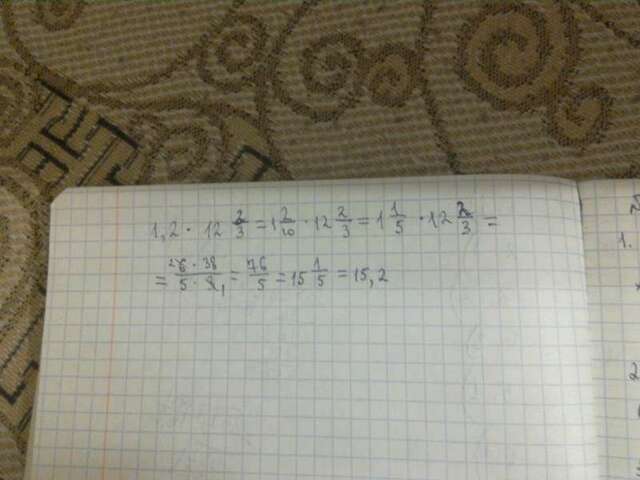 1,2 · 12 2/3 = 1 2/10 · 12 2/3 = 1 1/5 · 12 2/3 =
= 6 · 38 / 5 · 3 = 76/5 = 15 1/5 = 15,2
1.
2